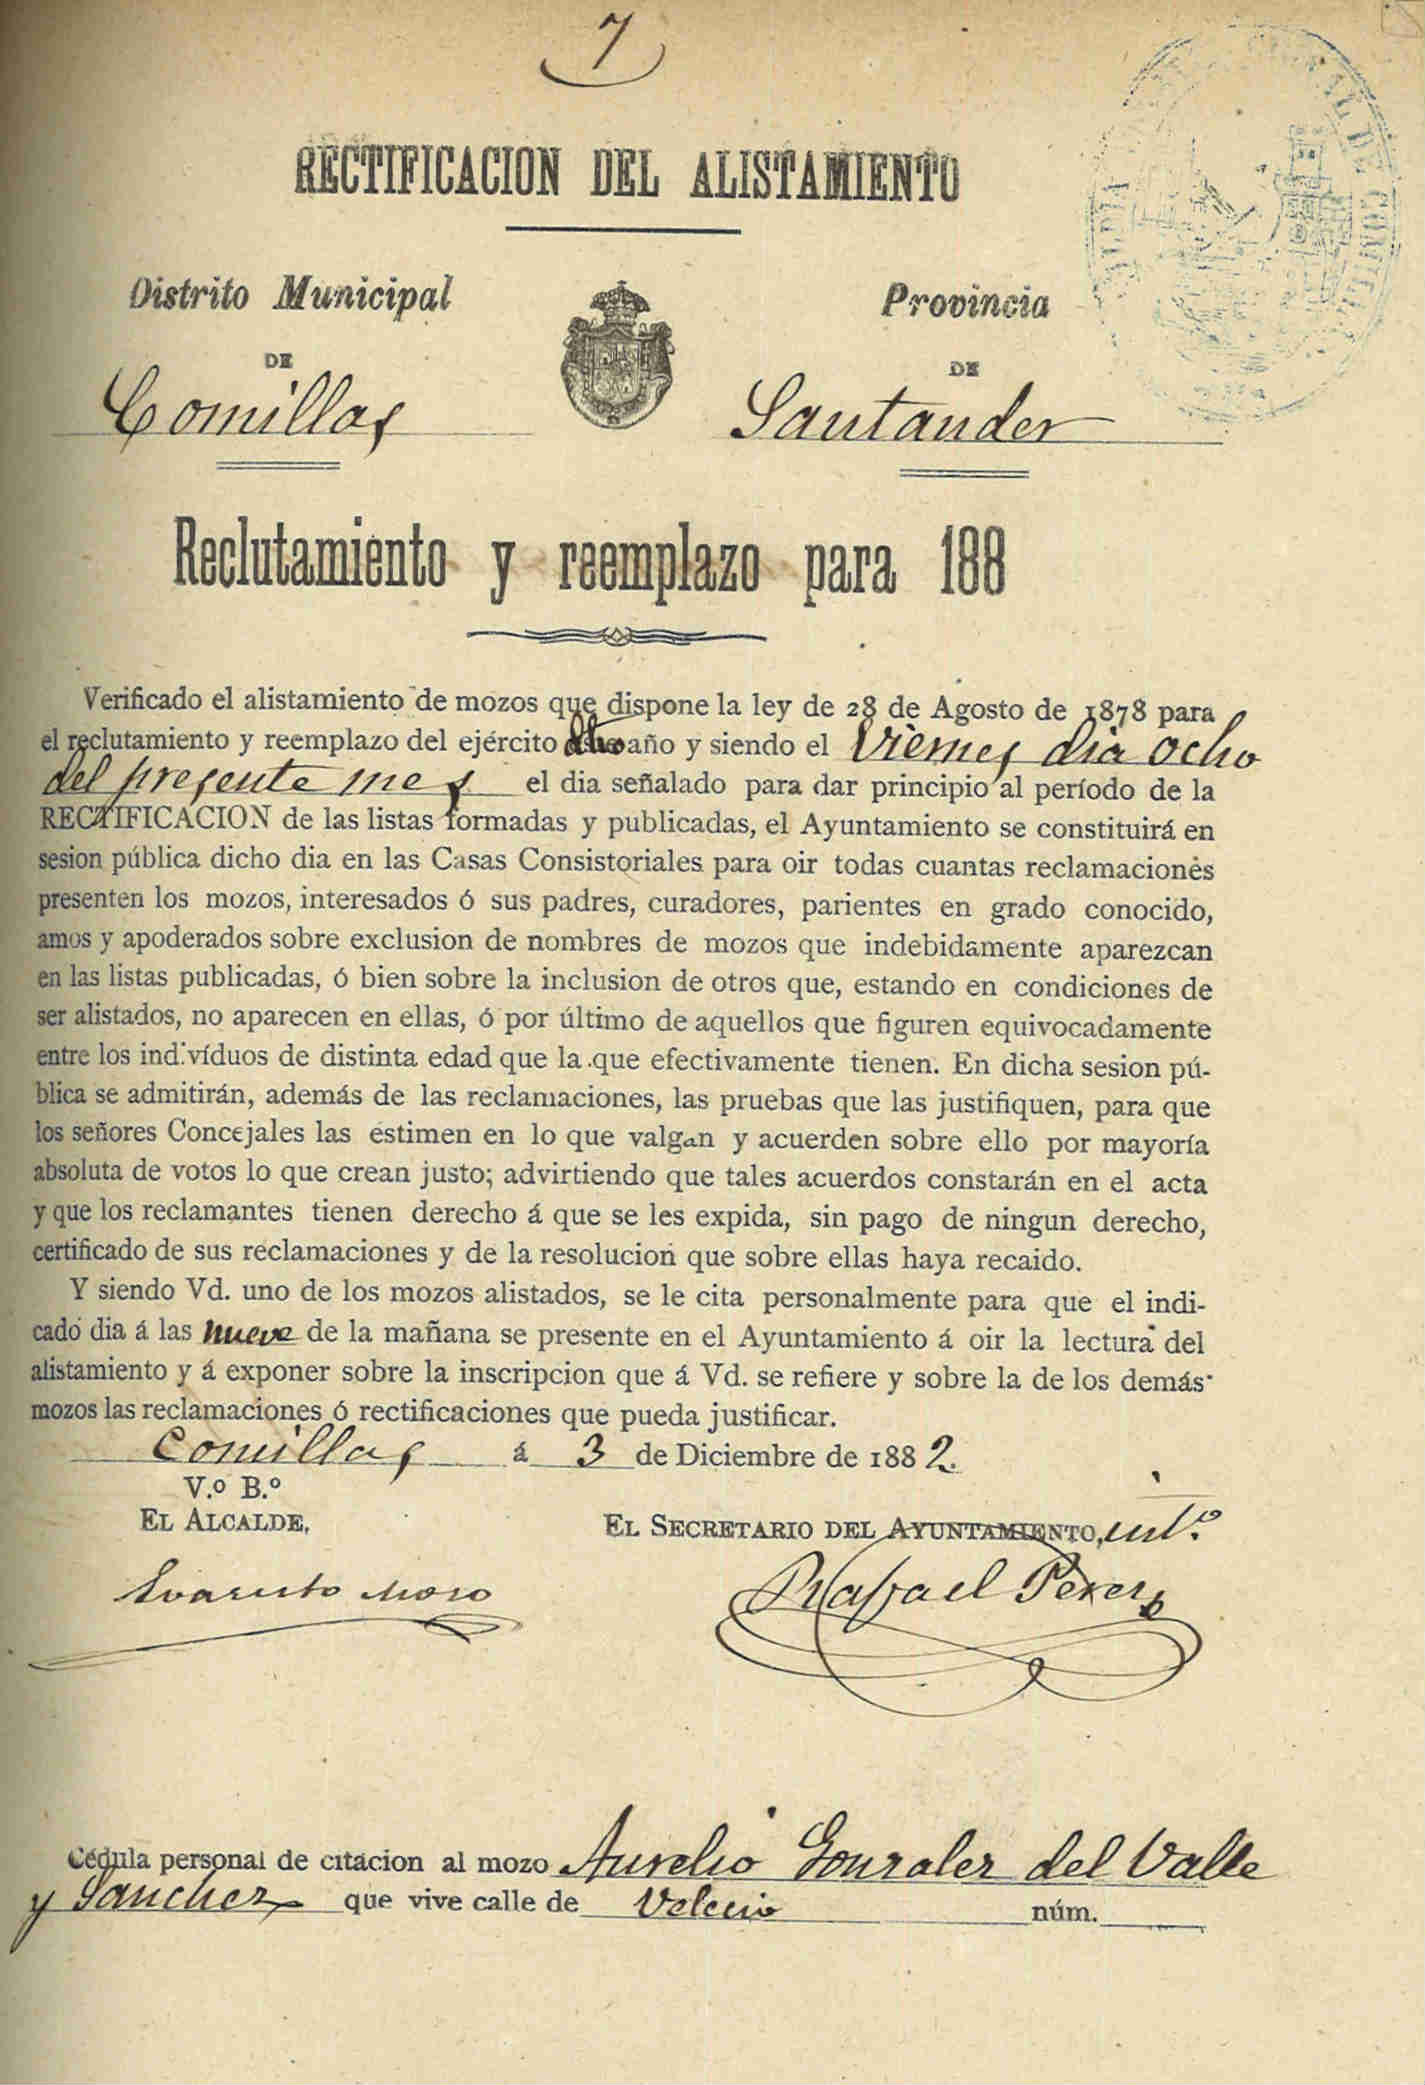 7
RECTIFICACION DEL ALISTAMIENTO
Distrito Municipal
DE
Comillas
Provincia
DE
Santander
Reclutamiento y reemplazo para 188
Verificado el alistamiento de mozos que dispone la ley de 28 de Agosto de 1878 para
el reclutamiento y reemplazo del ejército año y siendo el Viernes dia ocho
del presente mes el dia señalado para dar principio al período de la
RECTIFICACION de las listas formadas y publicadas, el Ayuntamiento se constituirá en
sesion pública dicho dia en las Casas Consistoriales para oir todas cuantas reclamaciones
presenten los mozos, interesados ó sus padres, curadores, parientes en grado conocido,
amos y apoderados sobre exclusion de nombres de mozos que indebidamente aparezcan
en las listas publicadas, ó bien sobre la inclusion de otros que, estando en condiciones de
ser alistados, no aparecen en ellas, ó por último de aquellos que figuren equivocadamente
entre los indivíduos de distinta edad que la que efectivamente tienen. En dicha sesion pú-
blica se admitirán, además de las reclamaciones, las pruebas que las justifiquen, para que
los señores Concejales las estimen en lo que valgan y acuerden sobre ello por mayoría
absoluta de votos lo que crean justo; advirtiendo que tales acuerdos constarán en el acta
y que los reclamantes tienen derecho á que se les expida, sin pago de ningun derecho,
certificado de sus reclamaciones y de la resolucion que sobre ellas haya recaido.
Y siendo Vd. uno de los mozos alistados, se le cita personalmente para que el indi-
cado dia á las nueve de la mañana se presente en el Ayuntamiento á oir la lectura del
alistamiento y á exponer sobre la inscripcion que á Vd. se refiere y sobre la de los demás
mozos las reclamaciones ó rectificaciones que pueda justificar.
Comillas á 3 de Diciembre de 1882.
V.º B.º
EL ALCALDE,
EL SECRETARIO DEL AYUNTAMIENTO, intº.
Evaristo Moro
Rafael Perez
Cédula personal de citacion al mozo Aurelio Gonzalez del Valle
y Sanchez que vive calle de Velecio núm.